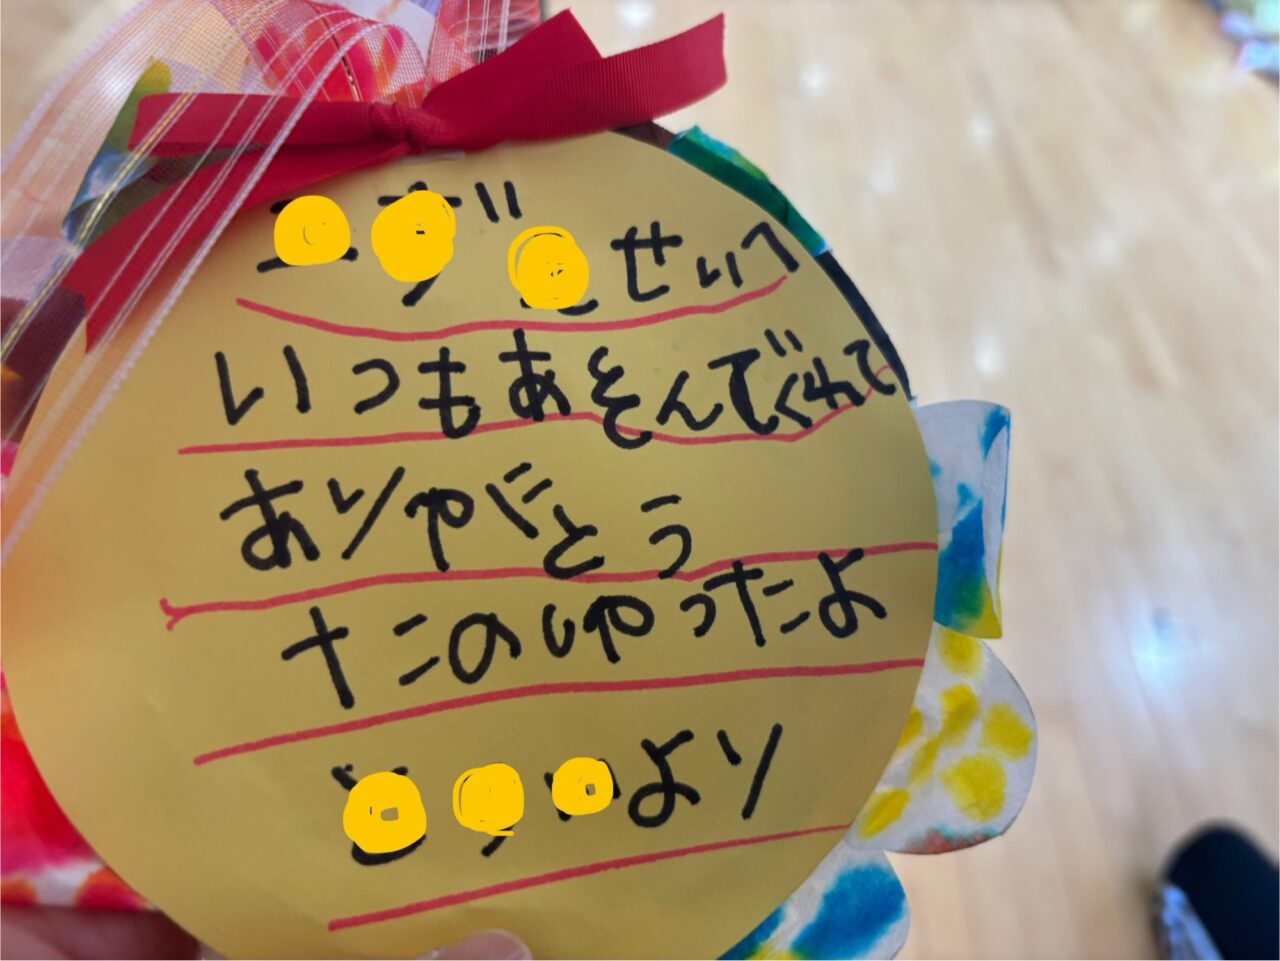 せいへ
いつもあそんでくれて
ありやにとう
たのしやったよ
より